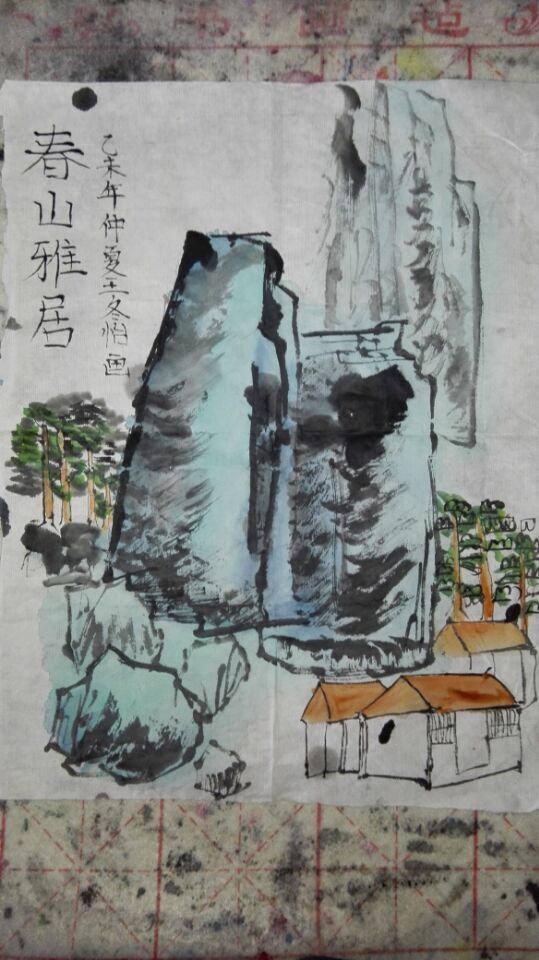 春山雅居
乙未年仲夏王冬怡画